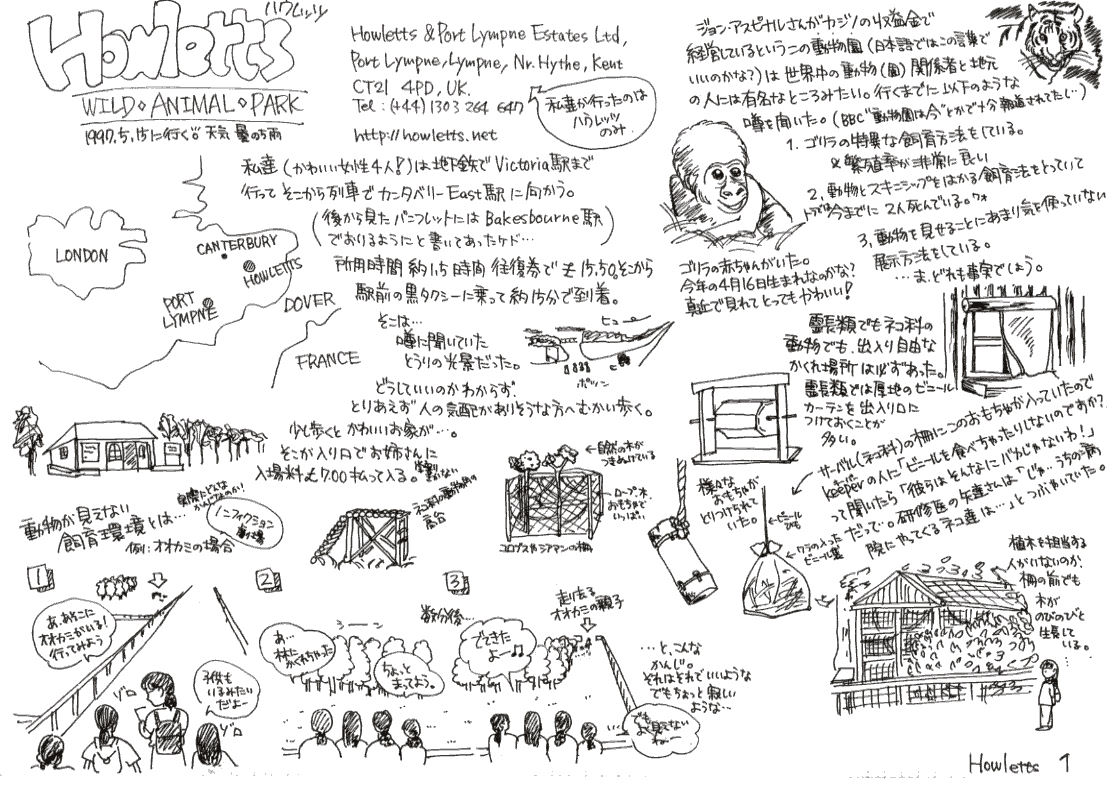 Howletts
ハウレッツ
WILD◇ANIMAL◇PARK
1997.5.15に行く 天気 曇のち雨
Howletts & Port Lympne Estates Ltd,
Port Lympne, Lympne, Nr. Hythe, Kent
CT21 4PD, UK.
Tel: (+44) 1303 264 647
http://howletts.net
私達が行ったのは
ハウレッツ
のみ.
私達(かわいい女性4人!)は地下鉄でVictoria駅まで
行ってそこから列車でカンタベリーEast駅に向かう。
(後から見たパンフレットにはBakesbourne駅
でおりるようにと書いてあったケド…)
所用時間 約1.5時間 往復券で£15.50。そこから
駅前の黒タクシーに乗って約15分で到着。
LONDON
CANTERBURY
HOWLETTS
PORT
LYMPNE
DOVER
FRANCE
そこは…
噂に聞いていた
とうりの光景だった。
ヒュー
ポツン
どうしていいのかわからず、
とりあえず人の気配がありそうな方へむかい歩く。
少し歩くとかわいいお家が…。
そこが入り口でお姉さんに
入場料£7.00払って入る。
ジョン・アスピナルさんがカジノの収益金で
経営しているというこの動物園(日本語ではこの言葉で
いいのかな?)は世界中の動物(園)関係者と地元
の人には有名なところみたい。行くまでに以下のような
噂を聞いた。(BBC"動物園は今"とかで十分報道されてたし…)
1. ゴリラの特異な飼育方法をしている。
& 繁殖率が非常に良い
2. 動物とスキンシップをはかる飼育方法をとっていて
今までに2人死んでいる。
3. 動物を見せることにあまり気を使っていない
展示方法をしている。
…ま、どれも事実でしょう。
ゴリラの赤ちゃんがいた。
今年の4月16日生まれなのかな?
真近で見れてとってもかわいい!
霊長類でもネコ科の
動物でも、出入り自由な
かくれ場所は必ずあった。
霊長類では厚地のビニール
カーテンを出入り口に
つけておくことが
多い。
サーバル(ネコ科)の柵にこのおもちゃが入っていたので
keeperの人に「ビニールを食べちゃったりしないのですか?」
って聞いたら「彼らはそんなにバカじゃないわ!」
だって。研修医の矢達さんは「じゃ、うちの病
院にやってくるネコ達は…」とつぶやいていた。
様々な
おもちゃが
とりつけられて
いた。
←ビニール
ひも
ワラの入った
ビニール袋
自然の木が
つきぬけている
ロープ、木、
おもちゃで
いっぱい。
コロブスやシアマンの柵
ネコ科の動物用の
寝台
動物が見えない
飼育環境とは…
実際にどんな
かんじなのか!
ノンフィクション
劇場
例:オオカミの場合
1
あ、あそこに
オオカミがいる!
行ってみよう
子供も
いるみたい
なんだよー
ゾロ
ゾロ
2
シーン
あ…
林に
かくれちゃった
ちょっと
まってよう。
3
数分後…
でてきた
よー♫
走り去る
オオカミの親子
でも
よく見えない
ねー
…と、こんな
かんじ。
それはそれでいいような
でもちょっと寂しい
ような…
植木を担当する
人がいないのか、
柵の前でも
木が
のびのびと
生長して
いる。
Howletts 1